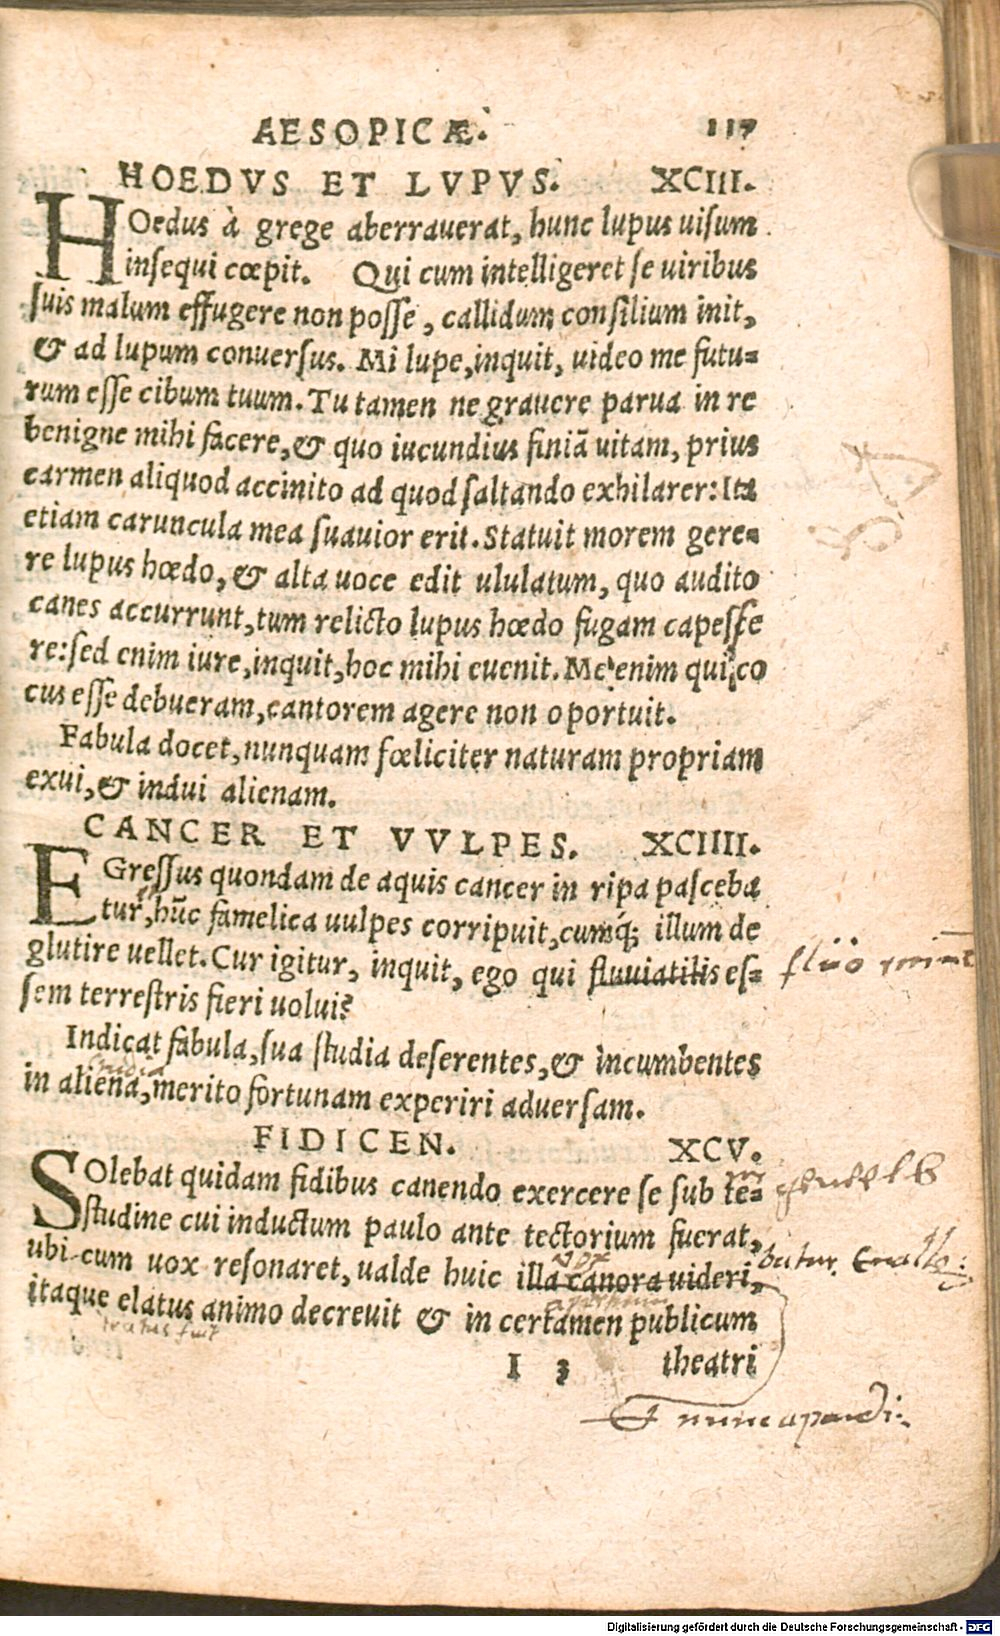 AESOPICÆ. 117
HOEDVS ET LVPVS. XCIII.
HOedus à grege aberrauerat, hunc lupus uisum
insequi cœpit. Qui cum intelligeret se uiribus
suis malum effugere non posse, callidum consilium init,
& ad lupum conuersus. Mi lupe, inquit, uideo me futu=
rum esse cibum tuum. Tu tamen ne grauere parua in re
benigne mihi facere, & quo iucundius finiã uitam, prius
carmen aliquod accinito ad quod saltando exhilarer: Ita
etiam caruncula mea suauior erit. Statuit morem gere=
re lupus hœdo, & alta uoce edit ululatum, quo audito
canes accurrunt, tum relicto lupus hœdo fugam capesse
re: sed enim iure, inquit, hoc mihi euenit. Me enim qui co
cus esse debueram, cantorem agere non oportuit.
Fabula docet, nunquam fœliciter naturam propriam
exui, & indui alienam.
CANCER ET VVLPES. XCIIII.
EGressus quondam de aquis cancer in ripa pasceba
tur, hũc famelica uulpes corripuit, cumq́; illum de
glutire uellet. Cur igitur, inquit, ego qui fluuiatilis es=
sem terrestris fieri uolui?
Indicat fabula, sua studia deserentes, & incumbentes
studia
in aliena, merito fortunam experiri aduersam.
FIDICEN. XCV.
SOlebat quidam fidibus canendo exercere se sub te=
studine cui inductum paulo ante tectorium fuerat,
ubi cum uox resonaret, ualde huic illa canora uideri,
itaque elatus animo decreuit & in certamen publicum
I 3 theatri
Digitalisierung gefördert durch die Deutsche Forschungsgemeinschaft - DFG